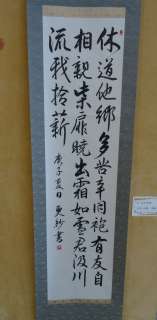 休道他郷多苦辛同袍有友自
相親柴扉暁出霜如雪君汲川
流我拾薪
庚子夏日 書